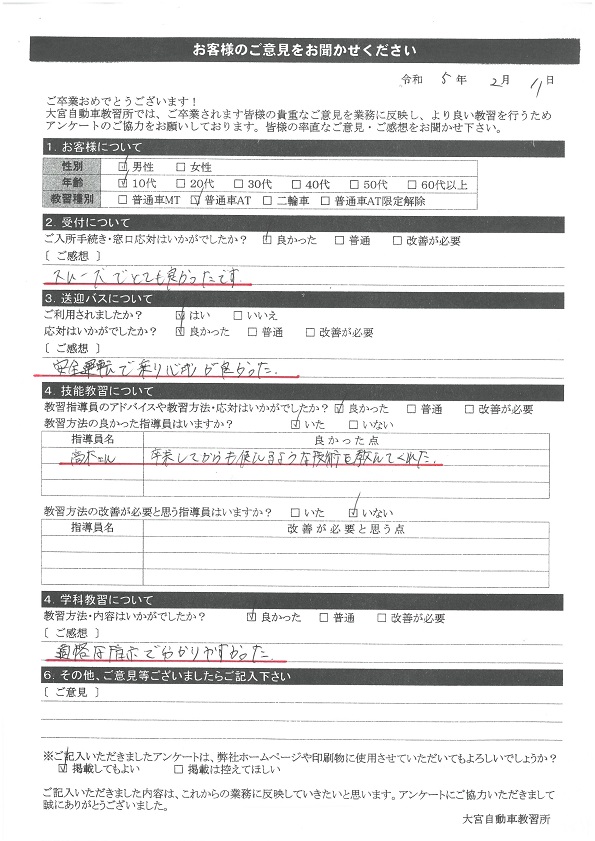 お客様のご意見をお聞かせください
令和 5 年 2 月 11 日
ご卒業おめでとうございます！
大宮自動車教習所では、ご卒業されます皆様の貴重なご意見を業務に反映し、より良い教習を行うため
アンケートのご協力をお願いしております。皆様の率直なご意見・ご感想をお聞かせ下さい。
1. お客様について
性別 ☑ 男性 □ 女性
年齢 ☑ 10代 □ 20代 □ 30代 □ 40代 □ 50代 □ 60代以上
教習種別 □ 普通車MT ☑ 普通車AT □ 二輪車 □ 普通車AT限定解除
2. 受付について
ご入所手続き・窓口応対はいかがでしたか？ ☑ 良かった □ 普通 □ 改善が必要
〔 ご感想 〕
スムーズでとても良かったです
3. 送迎バスについて
ご利用されましたか？ ☑ はい □ いいえ
応対はいかがでしたか？ ☑ 良かった □ 普通 □ 改善が必要
〔 ご感想 〕
安全運転で乗り心地が良かった.
4. 技能教習について
教習指導員のアドバイスや教習方法・応対はいかがでしたか？ ☑ 良かった □ 普通 □ 改善が必要
教習方法の良かった指導員はいますか？ ☑ いた □ いない
指導員名 良かった点
高木さん 卒業してからも使えるような技術を教えてくれた.
教習方法の改善が必要と思う指導員はいますか？ □ いた ☑ いない
指導員名 改善が必要と思う点
4. 学科教習について
教習方法・内容はいかがでしたか？ ☑ 良かった □ 普通 □ 改善が必要
〔 ご感想 〕
適格な指示で分かりやすかった.
6. その他、ご意見等ございましたらご記入下さい
〔 ご意見 〕
※ご記入いただきましたアンケートは、弊社ホームページや印刷物に使用させていただいてもよろしいでしょうか？
☑ 掲載してもよい □ 掲載は控えてほしい
ご記入いただきました内容は、これからの業務に反映していきたいと思います。アンケートにご協力いただきまして
誠にありがとうございました。
大宮自動車教習所